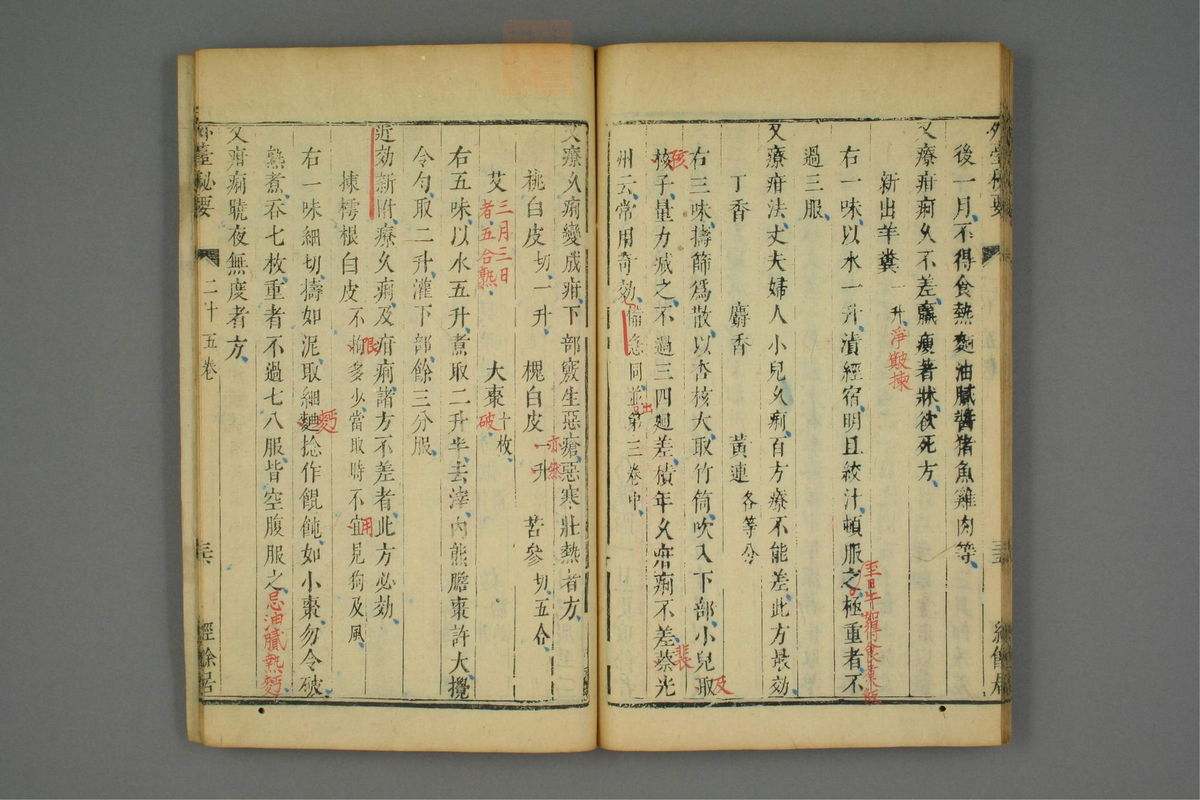 後一月不得食熱麵油膩醬猪魚雞肉等
又療疳痢久不差羸瘦著牀欲死方
新出羊糞一升淨皾揀
右一味以水一升漬經宿明旦絞汁頓服之極重者不
至日午得食煮飯
過三服
又療疳法丈夫婦人小兒久痢百方療不能差此方最効
丁香 麝香 黃連各等分
右三味擣篩爲散以杏核大取竹筒吹入下部小兒取
及
孩
核子量力減之不過三四廻差積年久疳痢不差蔡光
裴
州云常用奇効備急同並第三卷中
出
又療久痢變成疳下部竅生惡瘡惡寒壯熱者方
桃白皮切一升 槐白皮一升 苦參切五合
亦然
艾三月三日者五合熟 大棗十枚破
右五味以水五升煮取二升半去滓內熊膽棗許大攪
令勻取二升灌下部餘三分服
近効新附療久痢及疳痢諸方不差者此方必効
揀樗根白皮不拘多少當取時不宜見狗及風
限
用
右一味細切擣如泥取細麵捻作餛飩如小棗勿令破
麪
熟煮吞七枚重者不過七八服皆空腹服之忌油膩熱麪
又疳痢曉夜無度者方
外臺秘要 二十五卷 三六 經餘居